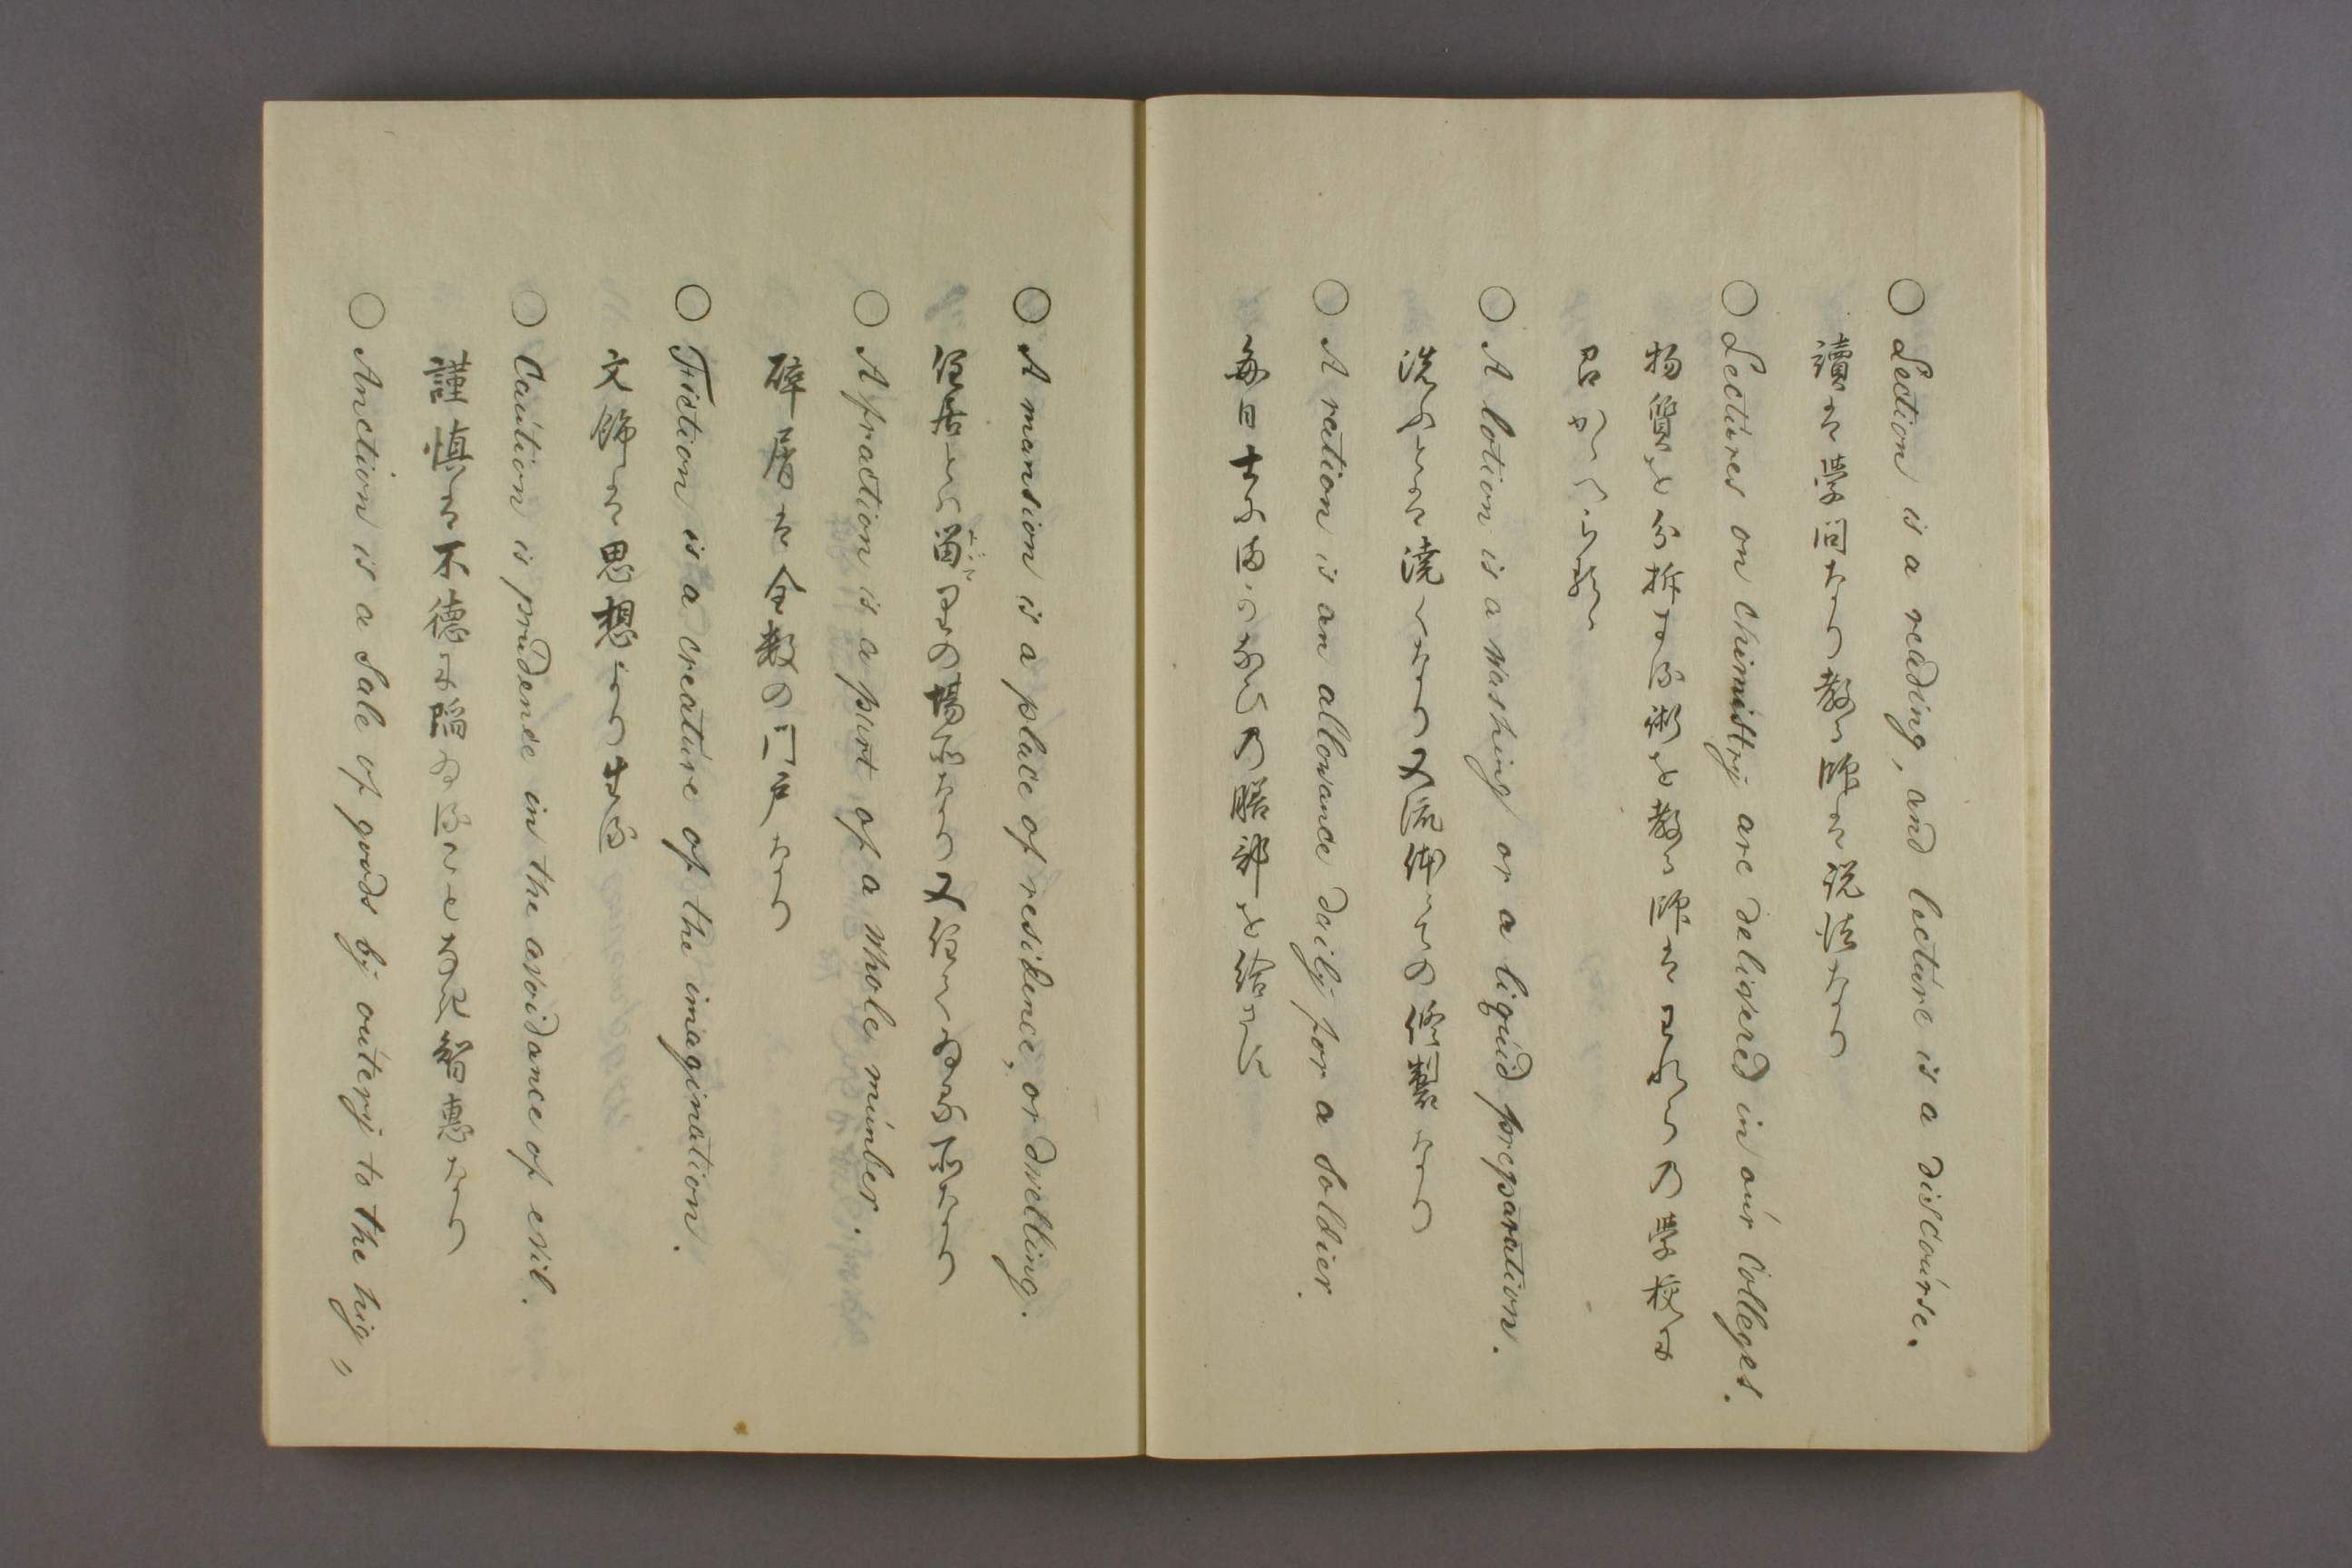 ○ Lection is a reading, and lecture is a discourse.
讀は學問なり教師は説法なり
○ Lectures on chimistry are delivered in our Colleges.
物質を分拆する術を教師は われらの學校に
○ A lotion is a washing or a liquid preparation.
洗ふとは澆くなり又流体 の修製なり
○ A rection is an allowance daily for a Soldier.
毎日士 の膳部を給
○ A mansion is a place of residence, or dwelling.
住居 は留 の場所なり又住 所なり
○ A fraction is a part of a whole, number.
砕屑は全数の一戸なり
○ Fiction is a creature of the imagination.
文飾は思想より生る
○ Caution is prudence in the avoidance of evil.
謹慎は不徳に陥 智惠なり
○ Anction is a Sale of goods by outery to the hig〃